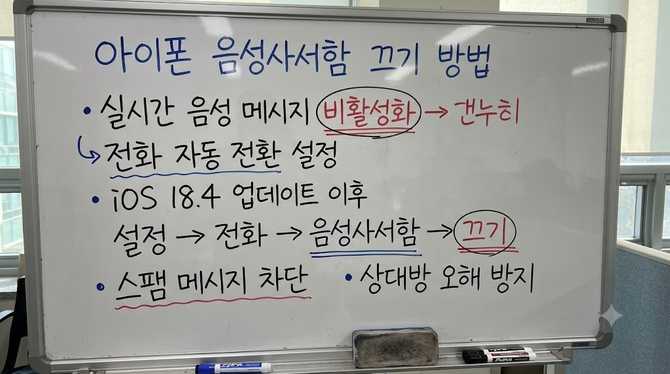 아이폰 음성사서함 끄기 방법
• 실시간 음성 메시지 비활성화 → 건누히
↳ 전화 자동 전환 설정
• iOS 18.4 업데이트 이후
설정 → 전화 → 음성사서함 → 끄기
• 스팸 메시지 차단 • 상대방 오해 방지